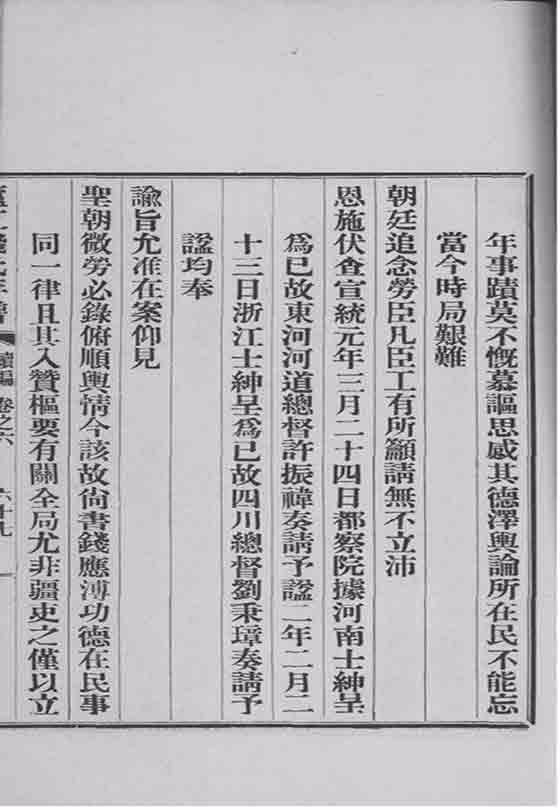 年事蹟莫不慨慕謳思感其德澤輿論所在民不能忘
當今時局艱難
朝廷追念勞臣凡臣工有所籲請無不立沛
恩施伏查宣統元年三月二十四日都察院據河南士紳呈
爲已故東河河道總督許振禕奏請予諡二年二月二
十三日浙江士紳呈爲已故四川總督劉秉璋奏請予
諡均奉
諭旨允准在案仰見
聖朝微勞必錄俯順輿情今該故尙書錢應溥功德在民事
同一律且其入贊樞要有關全局尤非疆吏之僅以立
續編 卷之六